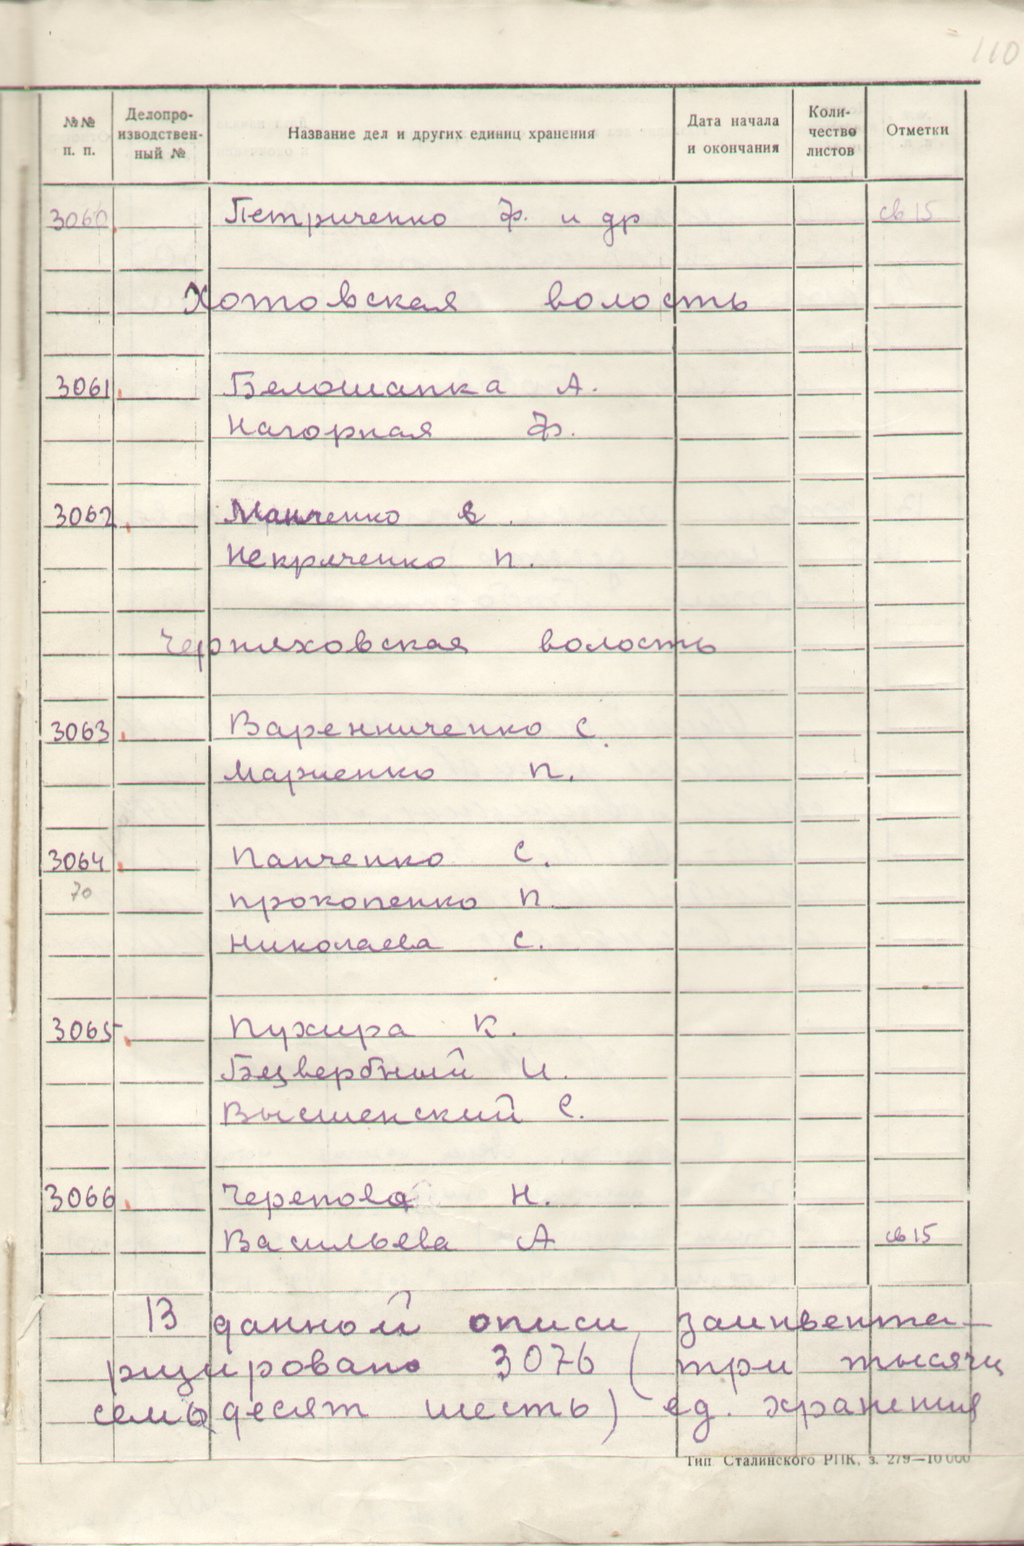 110
№№ п. п.
Делопро-изводствен-ный №
Название дел и других единиц хранения
Дата начала и окончания
Коли-чество листов
Отметки
3060 Петриченко Ф. и др св 15
Хотовская волость
3061 Белошапка А.
Нагорная Ф.
3062 Манченко В.
Некряченко П.
Черняховская волость
3063 Варенниченко С.
Мариенко П.
3064 Панченко С.
70 Прокопенко П.
Николаева С.
3065 Пухира К.
Безвербный И.
Высшенский С.
3066 Черепова Н.
Васильева А св 15
В данной описи заинвента-
ризировано 3076 (три тысячи
семьдесят шесть) ед. хранения
Тип Сталинского РПК, з. 279—10 000